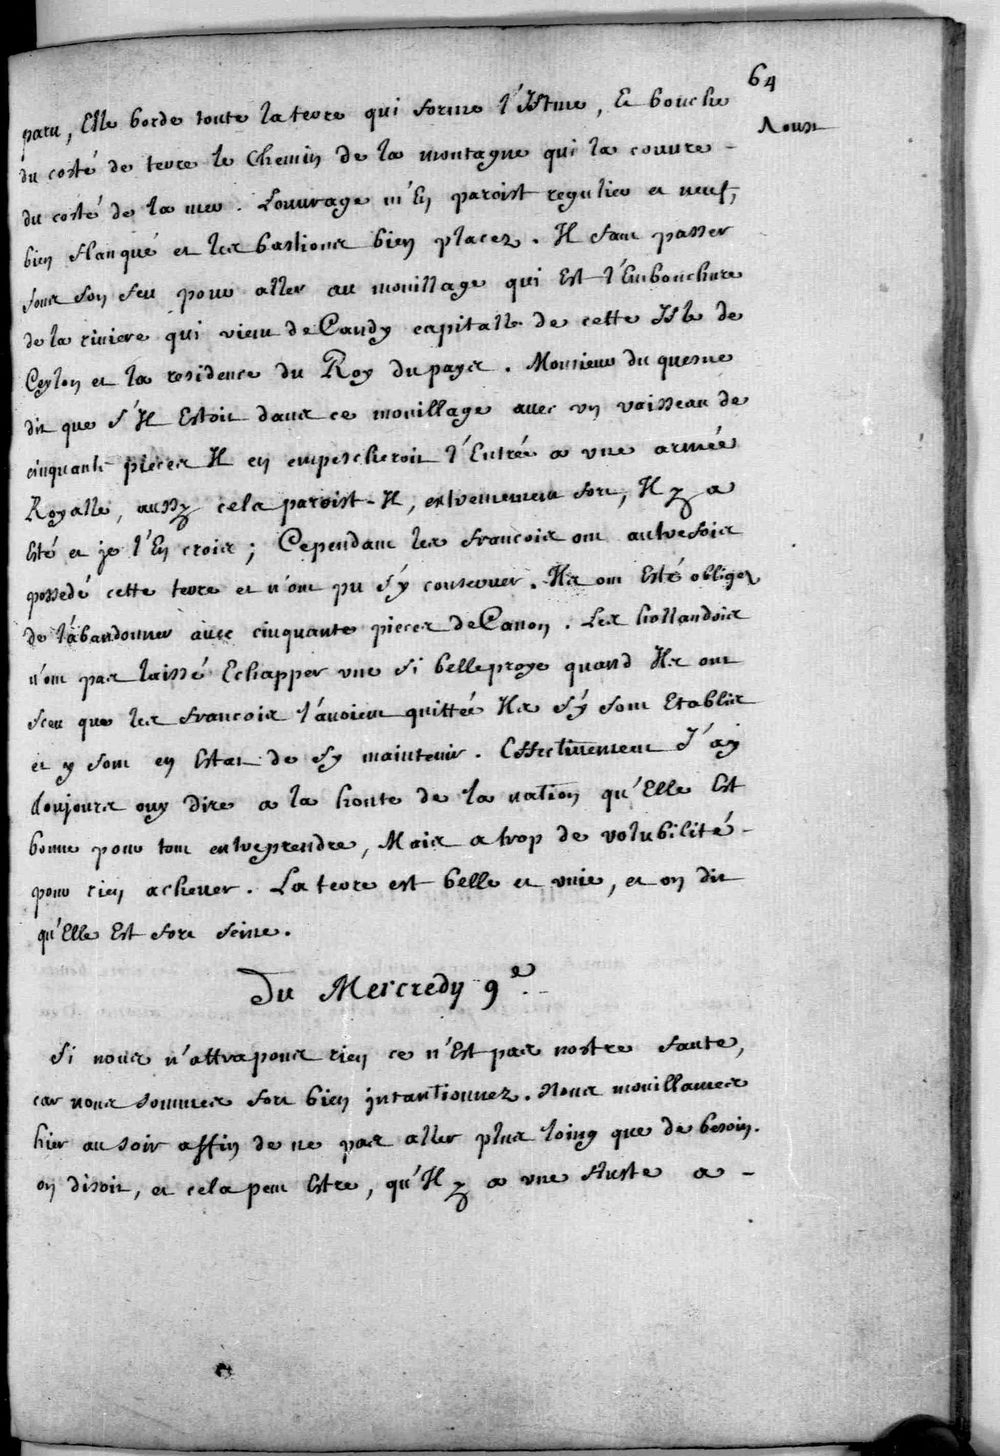 64
Aoust
paru, Elle borde toute la terre qui forme l'Istme, Et bouche
du costé de terre le Chemin de la montagne qui la couvre -
du costé de la mer. L'ouvrage m'En paroist regulier et neuf,
bien flanqué et les bastions bien placez. Il faut passer
sous son feu pour aller au mouillage qui Est l'Embouchure
de la riviere qui vient de Candy capitalle de cette Isle de
Ceylon et la residence du Roy du pays. Monsieur du quesne
dit que s'Il Estoit dans ce mouillage avec vn vaisseau de
cinquante pieces Il en empescheroit l'Entrée a vne armée
Royalle, aussy cela paroist-Il, extremement fort, Il y a
Esté et je l'En crois; Cependant les francois ont autrefois
possedé cette terre et n'ont pu s'y conserver. Ils ont Esté obligez
de l'abandonner avec cinquante pieces de Canon. Les hollandois
n'ont pas laissé Echapper vne si belle proye quand Ils ont
sceu que les francois l'avoient quittée Ils s'y sont Etablis
et y sont en Estat de s'y maintenir. Effectivement J'ay
toujours ouy dire a la honte de la nation qu'Elle Est
bonne pour tout entreprendre, Mais a trop de volubilité -
pour rien achever. La terre est belle et vnie, et on dit
qu'Elle Est fort seine.
Du Mercredy 9e.
Si nous n'attrapons rien ce n'Est pas nostre faute,
car nous sommes fort bien jntantionnez. Nous mouillames
hier au soir affin de ne pas aller plus loing que de besoin.
on disoit, et cela peut Estre, qu'Il y a vne fluste a -